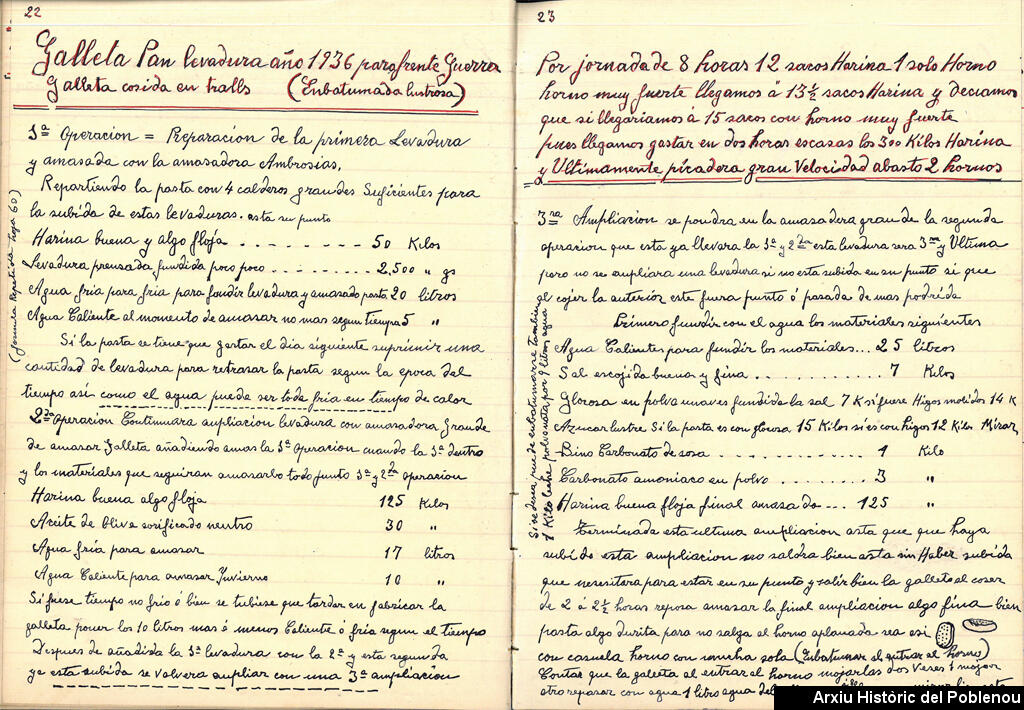 22
Galleta Pan levadura año 1936 para frente Guerra
Galleta cosida en tralls (Enbatumada lustrosa)
1ª Operacion = Reparacion de la primera Levadura
y amasada con la amasadora Ambrosias.
Repartiendo la pasta con 4 calderos grandes Suficientes para
la subida de estas levaduras. asta su punto
Harina buena y algo floja - - - - - - - - 50 Kilos
Levadura prensada fundida poco poco - - - - - - - 2,500 " gs
Agua fria para fria para fundir levadura y amasado pasta 20 litros
Agua Caliente al momento de amasar no mas segun tiempo 5 "
Si la pasta se tiene que gastar el dia siguiente suprimir una
cantidad de levadura para retrasar la pasta segun la epoca del
tiempo asi como el agua pueda ser toda fria en tiempo de calor
2da Operacion Continuara ampliacion levadura con amasadora grande
de amasar Galleta añadiendo amas la 1ª operacion cuando la 1ª dentro
y los materiales que seguiran amasarlo todo junto 1ª y 2da operacion
Harina buena algo floja 125 Kilos
Aceite de Oliva sorificado neutro 30 "
Agua fria para amasar 17 litros
Agua Caliente para amasar Yuvierno 10 "
Si fuese tiempo no frio ó bien se tubiese que tardar en fabricar la
galleta poner los 10 litros mas ó menos Caliente ó fria segun el tiempo
Despues de añadida la 1ª levadura con la 2ª y esta segunda
ya esta subida se volvera ampliar con una 3ª ampliacion
(formula Repetida hoja 60)
23
Por jornada de 8 horas 12 sacos Harina 1 solo Horno
horno muy fuerte llegamos á 13½ sacos Harina y deciamos
que si llegariamos á 15 sacos con horno muy fuerte
pues llegamos gastar en dos horas escasas los 300 Kilos Harina
y Ultimamente picadora gran Velocidad abasto 2 hornos
3ra Ampliacion se pondra en la amasadera grande la segunda
operacion que esta ya llevara la 1ª y 2da esta levadura sera 3ra y Ultima
pero no se ampliara una levadura si no esta subida en su punto si que
cojer la anterior este fuera punto ó pasada de mas podrida
Primero fundir con el agua los materiales siguientes
Agua Calientes para fundir los materiales... 25 litros
Sal escojida buena y fina . . . . . . . . . . . 7 Kilos
Glocosa en polvo una ves fundida la sal 7 K si fuese Higos molidos 14 K
Azucar lustre Si la pasta es con glocosa 15 Kilos si es con higos 12 Kilos Mirar
Bino Carbonato de sosa . . . . . . . . . . . 1 Kilo
Carbonato amoniaco en polvo . . . . . . . . 3 "
Harina buena floja final amasado... 125 "
Terminada esta ultima ampliacion asta que que haya
subido esta ampliacion no saldra bien asta sin Haber subida
que nesesitera para estar en su punto y salir bien la galleta al coser
de 2 á 2½ horas reposa amasar la final ampliacion algo fina bien
pasta algo durita para no salga el horno aplanada sea asi
con casuela horno con mucha sola (Enbatumar al entrar al horno)
Contar que la galleta al entrar al horno mojarlas dos veces 1 mojar
otro repasar con agua 1 litro agua
1 Kilo leche polvo unta por 9 litros agua
Arxiu Històric del Poblenou